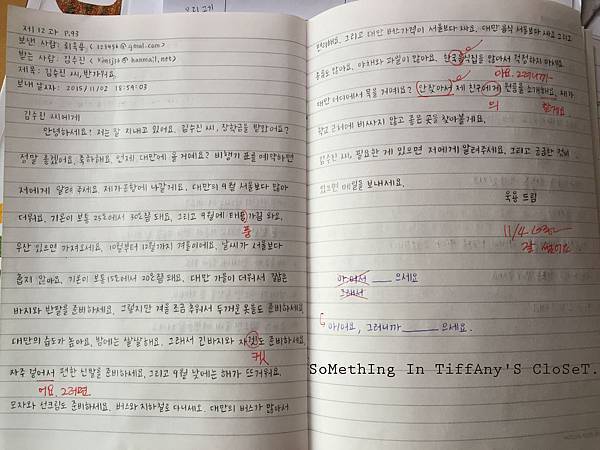 제 12 과 P.93
보낸 사람: 최욱용 (123456@gmail.com)
받는 사람: 김수진 (kimsjjo@hanmail.net)
제목: 김수진 씨, 반가워요.
보내 날짜: 2015/11/02 18:54:03
김수진 씨에게
안녕하세요? 저는 잘 지내고 있어요. 김수진 씨, 장학금을 받았어요?
정말 좋겠어요. 축하해요. 언제 대만에 올 거예요? 비행기 표를 예약하면
저에게 알려 주세요. 제가 공항에 나갈게요. 대만의 9월 서울보다 많아
더워요. 기온이 보통 25도에서 30도쯤 돼요. 그리고 9월에 태풍 가끔 와요.
풍
우산 있으면 가져오세요. 10월부터 12월까지 겨울이에요. 날씨가 서울보다
춥지 않아요. 기온이 보통 15도에서 20도쯤 돼요. 대만 가을이 더워서 짧은
바지와 반팔을 준비하세요. 그렇지만 겨울 조금 추워서 두꺼운 옷들도 준비하세요.
대만의 습도가 높아요. 밤에는 쌀쌀해요. 그래서 긴 바지와 도 준비하세요.
킷
자주 걸어서 편한 신발을 준비하세요. 그리고 9월 낮에는 해가 뜨거워요.
어요. 그러면
모자와 선크림도 준비하세요. 버스와 지하철로 다니세요. 대만의 버스가 많아서
편리해요. 그리고 대만 버스가격이 서울보다 싸요. 대만 음식 서울보다 싸요. 그리고
종류도 많아요. 야채와 과일이 많아요. 한국 음식점들 많아서 걱정하지 마세요.
아요. 그러니까
대만 어디에서 묵을 거예요? 안 찾아서 제 친구에게 원룸을 소개해요. 제가
의 할게요
학교 근처에 비싸지 않고 좋은 곳을 찾아볼게요.
김수진 씨, 필요한 게 있으면 저에게 알려주세요. 그리고 궁금한 것이
있으면 메일을 보내세요.
욱용 드림
11/4
잘 썼어요
아/어서 ___ 으세요
그래서
아/어요, 그러니까 ______ 으세요.
SoMething In TiffAny'S CloSeT.